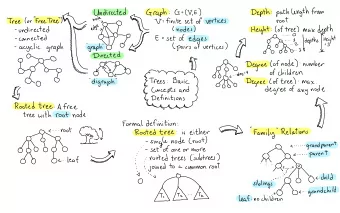 Tree (or Free Tree)
- undirected
- connected
- acyclic graph
Undirected
graph
Directed
digraph
Graph: G=(V,E)
V = finite set of vertices
(nodes)
E = set of edges
(pairs of vertices)
Depth: path length from
root
Height (of tree) max depth
depths
height
Degree (of node) number
of children
Degree (of tree) max
degree of any node
Trees: Basic
Concepts and
Definitions
Rooted tree: A free
tree with root node
root
leaf
Formal definition:
Rooted tree is either
- single node (root)
- set of one or more
rooted trees (subtrees)
joined to a common root
"Family" Relations
grandparent
parent
siblings
child
grandchild
leaf: no children